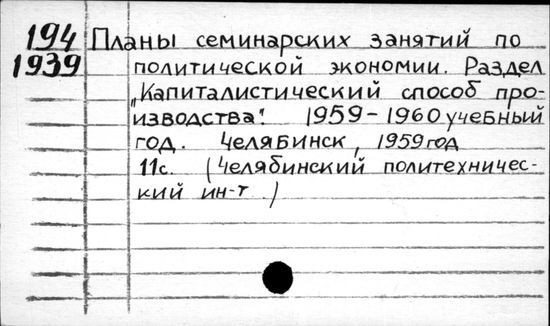 194 Планы семинарских занятий по
1939 политической экономии. Раздел
„Капиталистический способ про-
изводства". 1959-1960 учебный
год. Челябинск, 1959 год
11с. (Челябинский политехничес-
кий ин-т.)